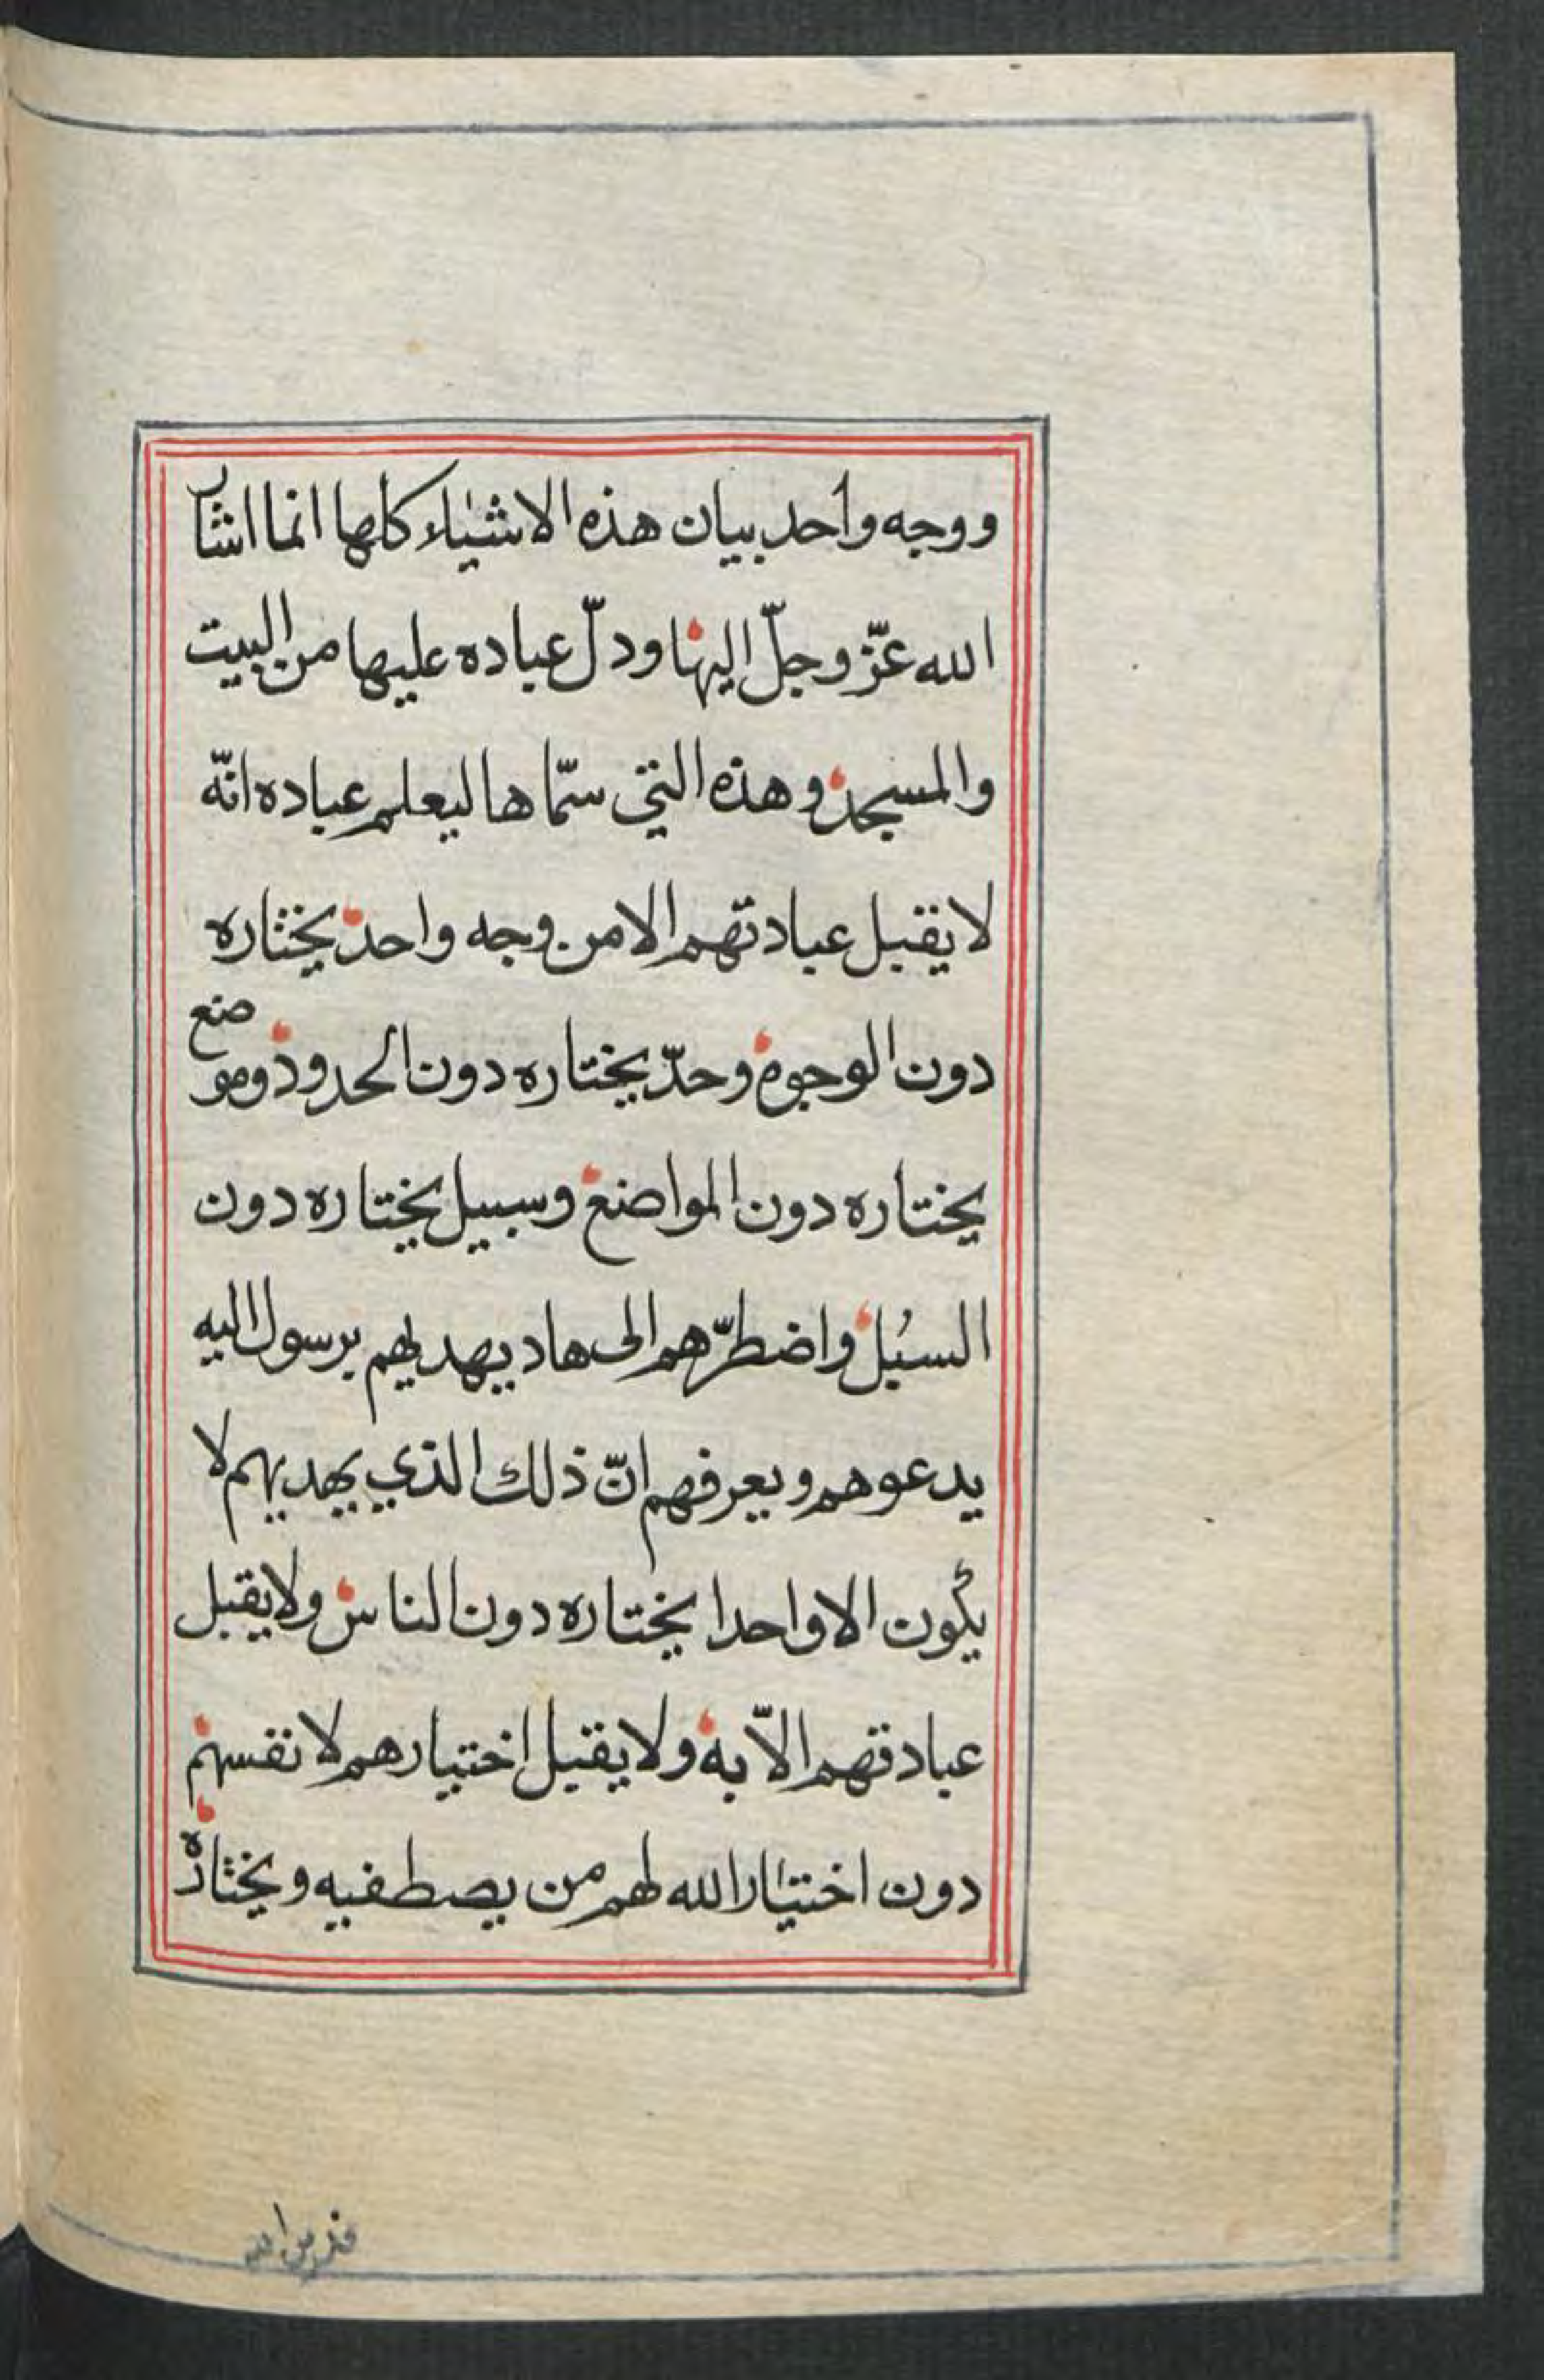 ووجه واحد بيان هذه الاشياء كلها انما اشار
الله عزّ وجلّ اليها ودلّ عباده عليها من البيت
والمسجد وهذه التي سمّاها ليعلم عباده انّه
لا يقبل عبادتهم الا من وجه واحد يختاره
دون الوجوه وحدّ يختاره دون الحدود وموضع
يختاره دون المواضع وسبيل يختاره دون
السُبل واضطرّهم الى هاد يهديهم برسول اليه
يدعوهم ويعرفهم انّ ذلك الذي يهديهم لا
يكون الا واحدا يختاره دون الناس ولا يقبل
عبادتهم الاّ به ولا يقبل اختيارهم لانفسهم
دون اختيار الله لهم من يصطفيه ويختاره
من الله